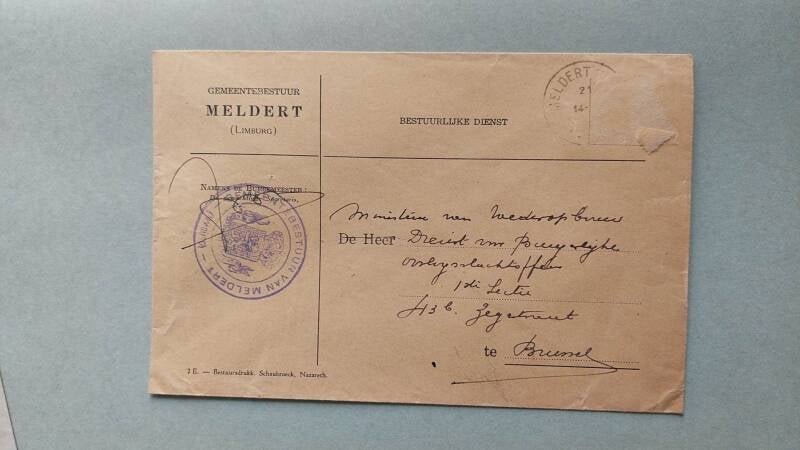 GEMEENTEBESTUUR
MELDERT
(LIMBURG)
BESTUURLIJKE DIENST
MELDERT
21
14-
NAMENS DE BURGEMEESTER :
GEMEENTEBESTUUR VAN MELDERT
Ministerie van Wederopbouw
De Heer Dienst van Burgerlijke
oorlogsslachtoffers
1ste Sectie
43
te Brussel
2 E. — Bestuursdrukk. Schaubroeck, Nazareth.